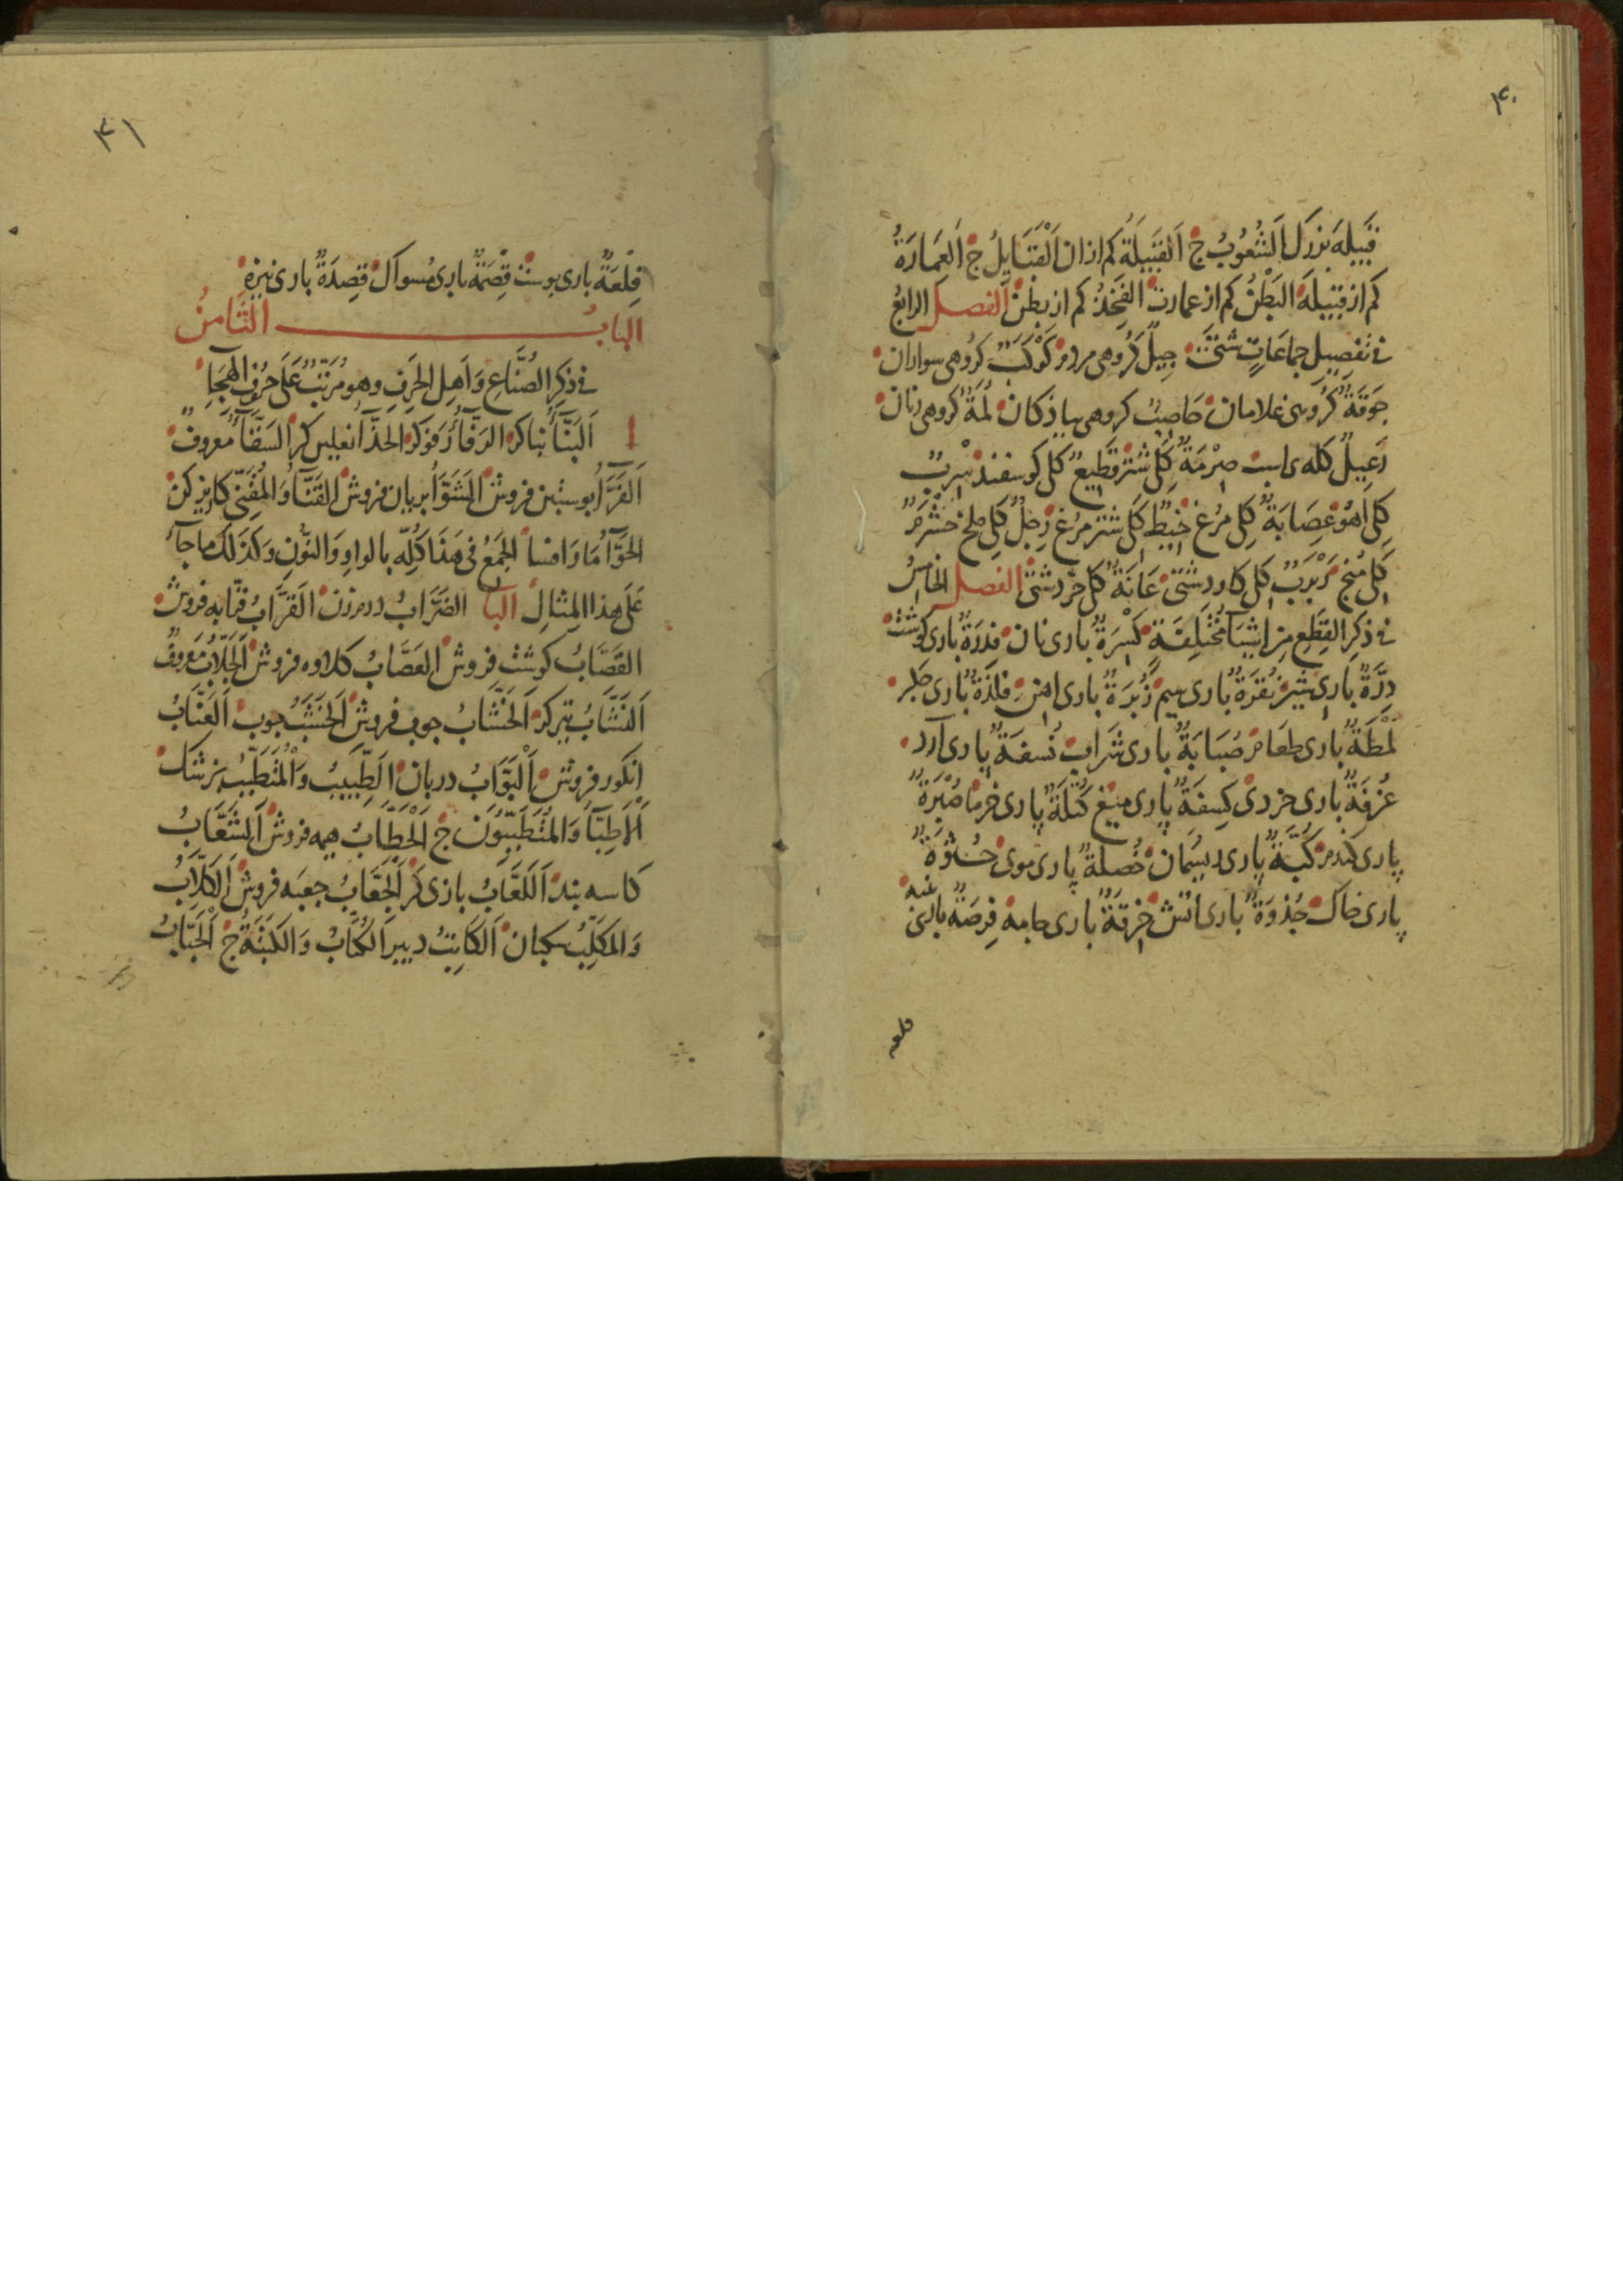 ۴۰
قَبِيلَه بزرك اَلشُّعُوبُ ج اَلقَبِيلَةُ كم ازان اَلْقَبَايِلُ ج اَلعِمَارَةُ
كم از قبيلَه البَطْنُ كم از عمارت الفَخِذُ كم از بطن الفصل الرابعُ
فى تفصِيلِ جماعَاتٍ شتَّى جِيلٌ كَرُوهى مردم كَوْكَبٌ كرُوهى سواران
جَوقَةٌ كرُوهى غلامان حَاصِبٌ كروهى پياذكان لُمَةٌ كروهى زنان
رَعِيلٌ كله ى اسب صِرْمَةٌ كلِ شتر قَطِيعٌ كل كوسفند سِرْبٌ
كلِ اَهُو عِصَابَةٌ كلِ مرُغ خَيْطٌ كلِ شتر مرُغ رِجلٌ كلِ ملخ خَشْرَمٌ
كلِ منج رَبْرَبٌ كلِ كاو دشتى عَانَةٌ كلِ خر دشتى الفصل الخامسُ
فى ذكرِ القِطَعِ مِن اشيَآ مُختَلِفَةٍ كِسْرَةٌ بارى نان فِدرَةٌ بارى كوشت
دِرَّةٌ بارى شير نُقرَةٌ بارى سيم زُبرَةٌ بارى اهن فلذَةٌ بارى جكر
لُمْظَةٌ بارى طعام صُبَابَةٌ بارى شراب نُسفَةٌ بارى آرد
غُرفَةٌ بارى خردى كِسفَةٌ پارى ميغ كُتلَةٌ پارى خرما صُبْرَةٌ
پارى كندم كُبَّةٌ پارى ريسمان خُصلَةٌ پارى موى حُثوَةٌ
پارى خاك جُذوَةٌ بارى اتش خِرقَةٌ بارى جامه فِرصَةٌ بارى پنبه
فلعه
۴۱
فِلْعَةٌ بارى پوست قِصمَةٌ بارى مسواك قِصدَةٌ بارى نيزه
البابُ الثَّامنُ
فى ذكرِ الصُّنَّاعِ وَاَهلِ الحِرَفِ وهو مُرَتَّبٌ عَلَى حرُوفِ الهجَاِ
ا اَلبَنَّآءُ بناكر الرَفَّآءُ رَفوكر الحَذَّآءُ نعلين كر السَقَّآءُ معروفٌ
اَلفَرَّآءُ پوستين فروش الشَوَّآءُ بريان فروش القَنَّآءُ وَالمُقَنِّى كاريز كن
الحَوَّآءُ مَارَ افسا الجَمعُ فى هَذَا كُلِّه بالواوِ وَالنُّونِ وَكَذَلك ما جآءَ
عَلَى هذا المِثالِ البا الضَرَّابُ درم زن القَرَّابُ قرابه فروش
القَصَّابُ كوشت فروش العَصَّابُ كلاوه فروش الجَلَّابُ معروفٌ
اَلنَشَّابُ تيركر اَلخَشَّابُ جوب فروش اَلخَشَبُ جوب اَلعَنَّابُ
انكور فروش اَلبَوَّابُ دربان اَلطَّبِيبُ وَالمُتَطَبِّبُ پزشك
اَلاَطِبَّآءُ وَالمُتَطَبِّبُونَ ج اَلحَطَّابُ هيمه فروش اَلشَعَّابُ
كاسه بند اَللَعَّابُ بازى كر اَلجَعَّابُ جعبه فروش اَلكَلَّابُ
وَالمُكَلِّبُ سكبان اَلكَاتِبُ دبير اَلكُتَّابُ وَالكَتَبَةُ ج اَلجَبَّابُ